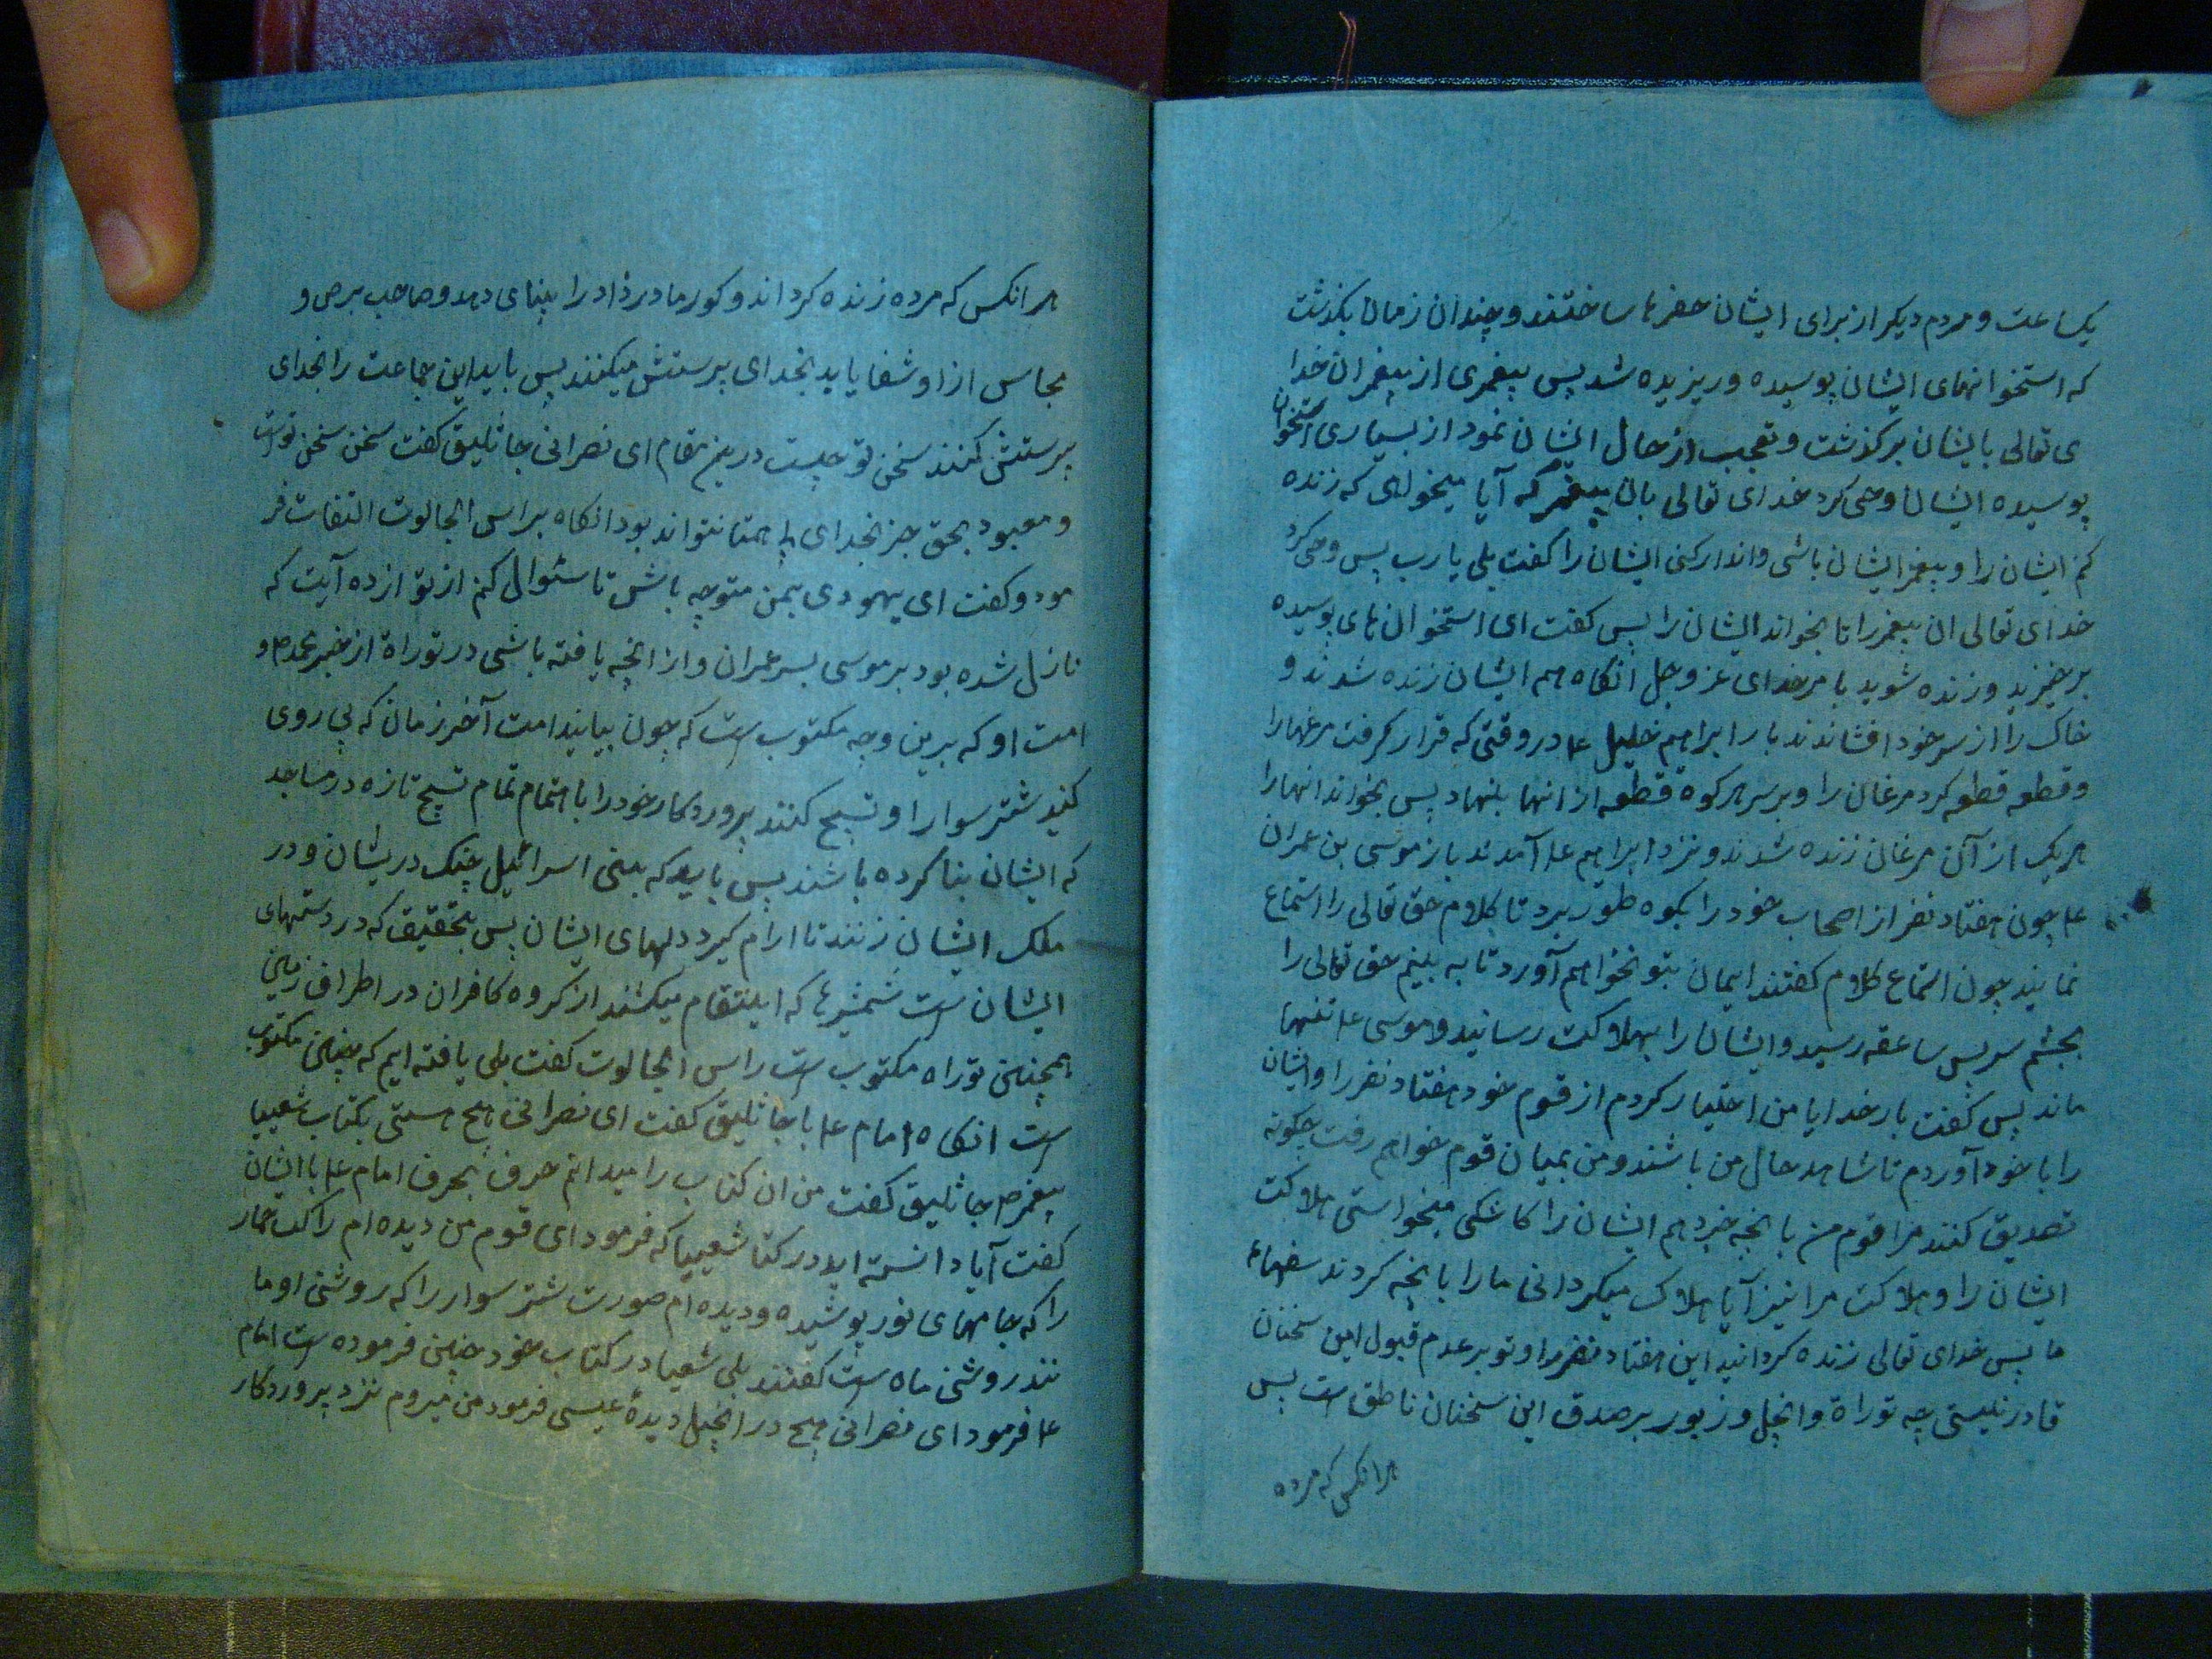 یکساعت و مردم دیکر از برای ایشان حفرها ساختند و چندان زمان بکذشت
که استخوانهای ایشان پوسیده و ریزیده شد پس پیغمبری از پیغمبران خدا
ی تعالی بایشان برکذشت و تعجب از حال ایشان نمود از بسیاری استخوان
پوسیده ایشان وحی کرد خدای تعالی بان پیغمبر که آیا میخواهی که زنده
کنم ایشان را و پیغمبر ایشان باشی و انذار کنی ایشان را کفت بلی یا رب پس وحی کرد
خدای تعالی ان پیغمبر را تا بخواند ایشان را پس کفت ای استخوان های پوسیده
برخیزید و زنده شوید بامر خدای عز و جل انکاه همه ایشان زنده شدند و
خاک را از سر خود افشاندند باز ابراهیم خلیل ع در وقتی که قرار کرفت مرغها را
و قطعه قطعه کرد مرغان را و بر سر هر کوه قطعه از انها بنهاد پس بخواند انها را
هر یک از آن مرغان زنده شدند و نزد ابراهیم ع آمدند باز موسی بن عمران
ع چون هفتاد نفر از اصحاب خود را بکوه طور برد تا کلام حق تعالی را استماع
نمایند چون استماع کلام کفتند ایمان بتو نخواهیم آورد تا به بینیم حق تعالی را
بچشم سر پس ساعقه رسید و ایشان را بهلاکت رسانید و موسی ع تنها
ماند پس کفت بار خدایا من اختیار کردم از قوم خود هفتاد نفر را و ایشان
را با خود آوردم تا شاهد حال من باشند و من بمیان قوم خواهم رفت چکونه
تصدیق کنند مرا قوم من بانچه خبر دهم ایشان را کاشکی میخواستی هلاکت
ایشان را و هلاکت مرا نیز آیا هلاک میکردانی ما را بانچه کردند سفهاء
ما پس خدای تعالی زنده کردانید این هفتاد نفر را و تو بر عدم قبول این سخنان
قادر نیستی چه توراة و انجیل و زبور بر صدق این سخنان ناطق است پس
هر انکس که مرده
هر انکس که مرده زنده کرداند و کور مادرزاد را بینای دهد و صاحب برص و
مجانین از او شفا یابد بخدای پرستش میکنند پس باید این جماعت را بخدای
پرستش کنند سخن تو چیست درین مقام ای نصرانی جاثلیق کفت سخن سخن تو است
و معبود بحق جز بخدای بی همتا نتواند بود انکاه براس الجالوت التفات فر
مود و کفت ای یهودی بمن متوجه باش تا سئوال کنم از تو از ده آیت که
نازل شده بود بر موسی پسر عمران و از انچه یافته باشی در توراة از خبر محمد ص و
امت او که برین وجه مکتوب است که چون بیایند امت آخر زمان که پی روی
کنند شتر سوار را و تسبیح کنند پروردکار خود را باهتمام تمام تسبیح تازه در مساجد
که ایشان بنا کرده باشند پس باید که بنی اسرائیل چنک در یشان و در
ملک ایشان زنند تا ارام کیرد دلهای ایشان پس بتحقیق که در دستهای
ایشان است شمشیرها که انتقام میکشند از کروه کافران در اطراف زمین
همچنین توراه مکتوب است راس الجالوت کفت بلی یافته ایم که چنین مکتوب
است انکاه امام ع با جاثلیق کفت ای نصرانی هیچ هستی بکتاب شعییا
پیغمبر ص جاثلیق کفت من ان کتاب را میدانم حرف بحرف امام ع با ایشان
کفت آیا دانسته اید در کتا شعییا که فرمود ای قوم من دیده ام راکب حمار
را که جامهای نور پوشیده و دیده ام صورت شتر سوار را که روشنی او ما
نند روشنی ماه است کفتند بلی شعیا در کتاب خود چنین فرموده است امام
ع فرمود ای نصرانی هیچ در انجیل دیدهٔ عیسی فرمود من میروم نزد پروردکار